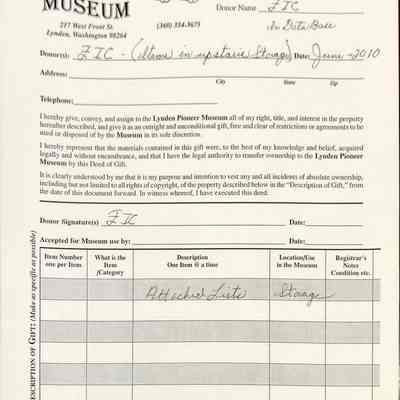 MUSEUM
217 West Front St.
Lynden, Washington 98264
(360) 354-3675
Donor Name FIC
In Data Base
Donor(s): FIC - (Items in upstairs Storage) Date: June - 2010
Address:
City State Zip
Telephone:
I hereby give, convey, and assign to the Lynden Pioneer Museum all of my right, title, and interest in the property
hereafter described, and give it as an outright and unconditional gift, free and clear of restrictions or agreements to be
used or disposed of by the Museum in its sole discretion.
I hereby represent that the materials contained in this gift were, to the best of my knowledge and belief, acquired
legally and without encumbrance, and that I have the legal authority to transfer ownership to the Lynden Pioneer
Museum by this Deed of Gift.
It is clearly understood by me that it is my purpose and intention to vest any and all incidents of absolute ownership,
including but not limited to all rights of copyright, of the property described below in the "Description of Gift," from
the date of this document forward. In witness whereof, I have executed this deed.
Donor Signature(s) FIC Date:
Accepted for Museum use by: Date:
DESCRIPTION OF GIFT: (Make as specific as possible)
Item Number
one per Item
What is the
Item
/Category
Description
One Item @ a time
Location/Use
in the Museum
Registrar's
Notes
Condition etc.
Attached Lists Storage